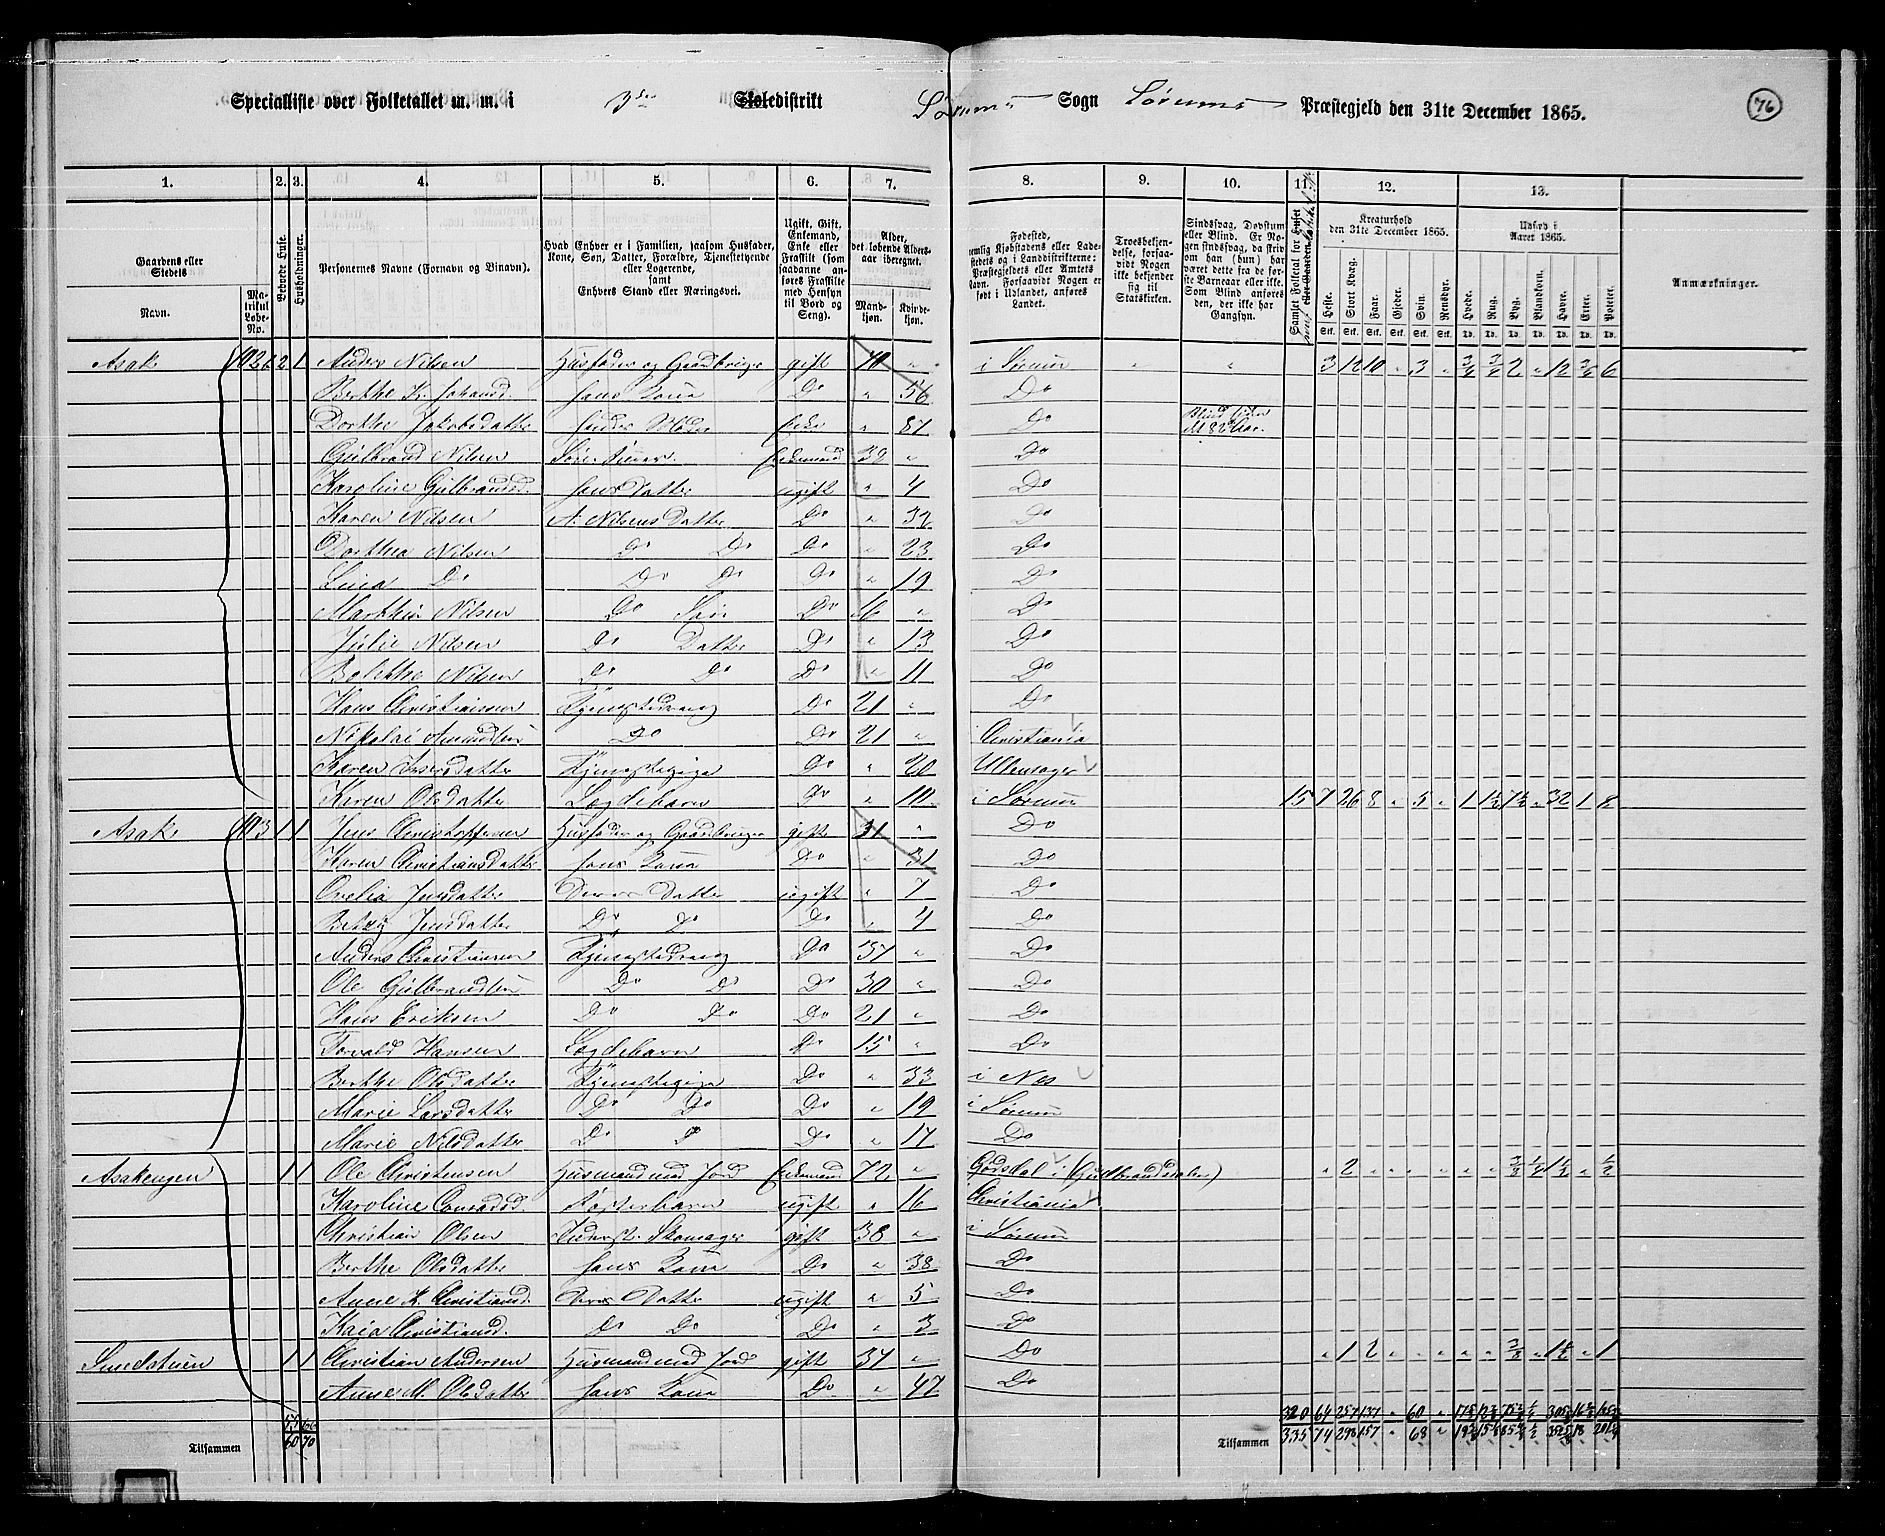 Specialliste over Folketallet m. m. i 3die Skoledistrikt Sørums Sogn Sørums Præstegjeld den 31te December 1865. 76
1. 2. 3. 4. 5. 6. 7. 8. 9. 10. 11. 12. 13.
Gaardens eller Stedets Navn.
Matrikul Løbe-No.
Beboede Huse.
Husholdninger.
Personernes Navne (Fornavn og Binavn).
Hvad Enhver er i Familien, saasom Husfader, Kone, Søn, Datter, Forældre, Tjenestetyende eller Logerende, samt Enhvers Stand eller Næringsvei.
Ugift, Gift, Enkemand, Enke eller Fraskilt (som saadanne anføres Fraskilte med Hensyn til Bord og Seng).
Alder, det løbende Aldersaar iberegnet.
Mandkjøn. Kvindekjøn.
Fødested,
Troesbekjendelse, forsaavidt Nogen ikke bekjender sig til Statskirken.
Sindssvag, Døvstum eller Blind. Er Nogen sindssvag, da skriv om han (hun) har været dette fra de første Barneaar eller ikke. Som Blind anføres den, der ikke har Gangsyn.
Kreaturhold den 31te December 1865.
Heste. Stort Kvæg. Faar. Gjeder. Svin. Rensdyr.
Udsæd i Aaret 1865.
Hvede. Rug. Byg. Blandkorn. Havre. Erter. Poteter.
Anmærkninger.
Asak 103 2 1 Anders Nilsen Husfader og Gaardbruger gift 70 " i Sørum " " 3 12 10 " 3 " 3/4 3/4 2 " 12 3/4 6
Berthe K. Johansd. hans Kone Do " 56 Do
Dorthe Jakobsdatter Enke " 87 Do Blind siden det 82 Aar.
Gulbrand Nilsen Enkemand 39 " Do
Karoline Gulbrandsd. hans Datter ugift " 4 Do
Karen Nilsen A. Nilsens Datter Do " 32 Do
Dorthea Nilsen Do Do Do " 23 Do
Lina Do Do Do Do " 19 Do
Marthin Nilsen Do Søn Do 16 " Do
Julie Nilsen Do Datter Do " 13 Do
Bolethe Nilsen Do Do Do " 11 Do
Hans Christiansen Tjenestedreng Do 21 " Do
Nikolai Amundsen Do Do 21 " i Christiania
Karen Iversdatter Tjenestepige Do " 20 Ullensager
Karen Olsdatter Lægdebarn Do " 10 i Sørum 15 7 26 8 " 5 " 1 1 1/2 7 1/2 " 32 1 8
Asak 103 1 1 Jens Christophersen Husfader og Gaardbruger gift 31 " Do
Karen Christiansdatter hans Kone Do " 31 Do
Orelia Jensdatter Deres Datter ugift " 7 Do
Betzy Jensdatter Do Do Do " 4 Do
Anders Christiansen Tjenestedreng Do 37 " Do
Ole Gulbrandsen Do Do Do 30 " Do
Hans Eriksen Do Do Do 21 " Do
Torvald Hansen Lægdebarn Do 15 " Do
Berthe Olsdatter Tjenestepige Do " 33 i Nes
Marie Larsdatter Do Do Do " 19 i Sørum
Marie Nilsdatter Do Do Do " 17 Do
Asakengen 1 1 Ole Christensen Husmand med Jord Enkemand 72 " Gausdal i (Gudbrandsdalen) " 2 " " " " " " 3/8 1/2 1 1/2 " 1/2
Karoline Conradsd. Fosterbarn ugift " 16 Christiania
Christian Olsen Inderst. Skomager gift 38 " i Sørum
Berthe Olsdatter hans Kone Do " 38 Do
Anne K. Christiansd. Deres Datter ugift " 5 Do
Kaia Christiansd. Do Do Do " 3 Do
1 1 Christian Andersen Husmand med Jord gift 37 " Do " 1 2 " " " " " 3/8 " 1 1/2 " 1
Anne M. Olsdatter hans Kone Do " 47 Do
320 64 257 137 " 60 "
Tilsammen 60 70 Tilsammen 335 74 298 157 " 68 "